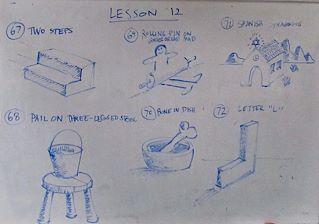 LESSON 12
67 TWO STEPS
69 ROLLING PIN ON
PAD
71 SPANISH
68 PAIL ON THREE-LEGGED STOOL
70 BONE IN DISH
72 LETTER "L"